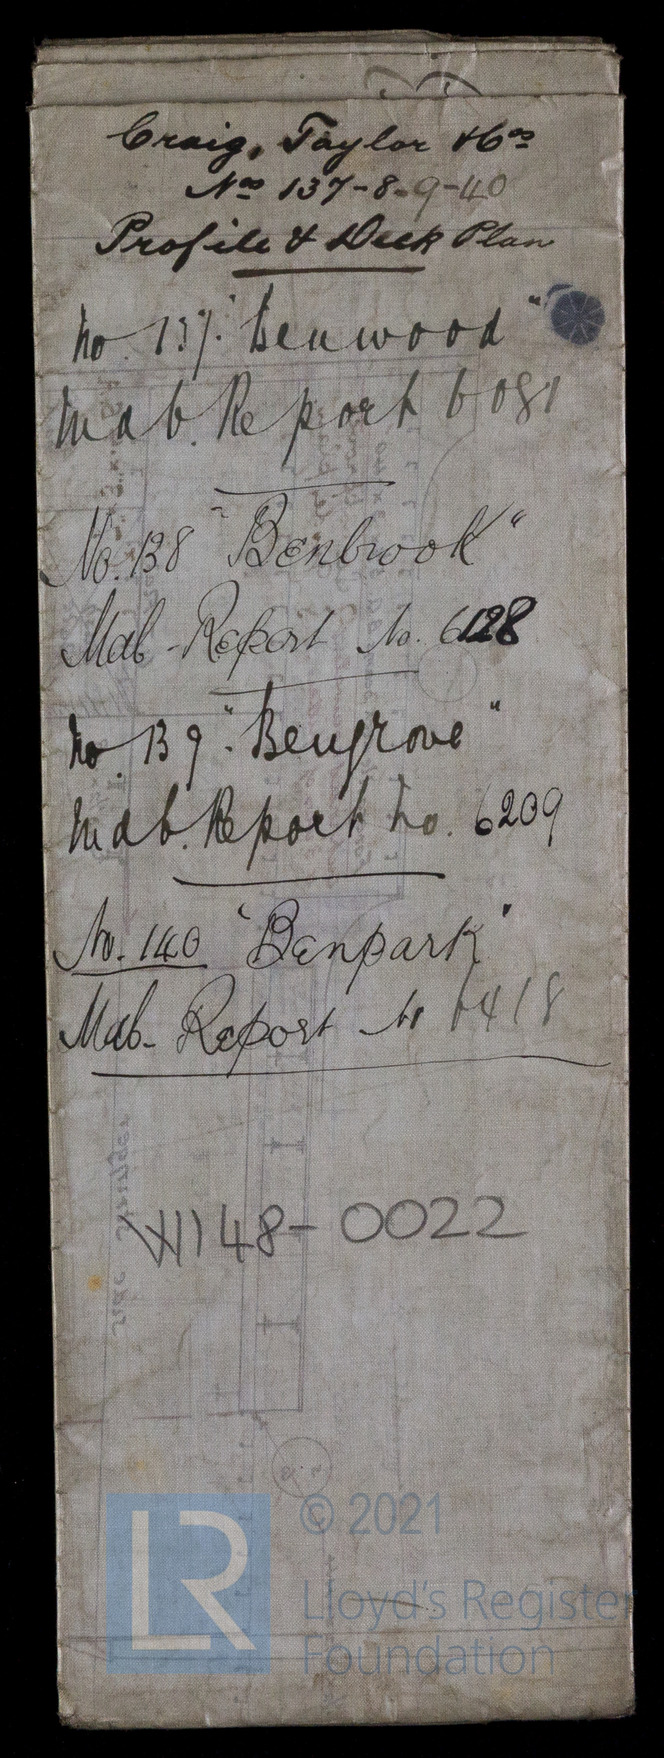 Craig, Taylor & Cos
Nos 137-8-9-40
Profile & Deck Plan
No. 137. "Benwood"
Mdb. Report 6081
No. 138 "Benbrook"
Mdb - Report No. 6128
No. 139. "Bengrove"
Mdb. Report No. 6209
No. 140 "Benpark"
Mdb - Report No 6418
W148-0022
side stringer
LR
© 2021
Lloyd's Register
Foundation